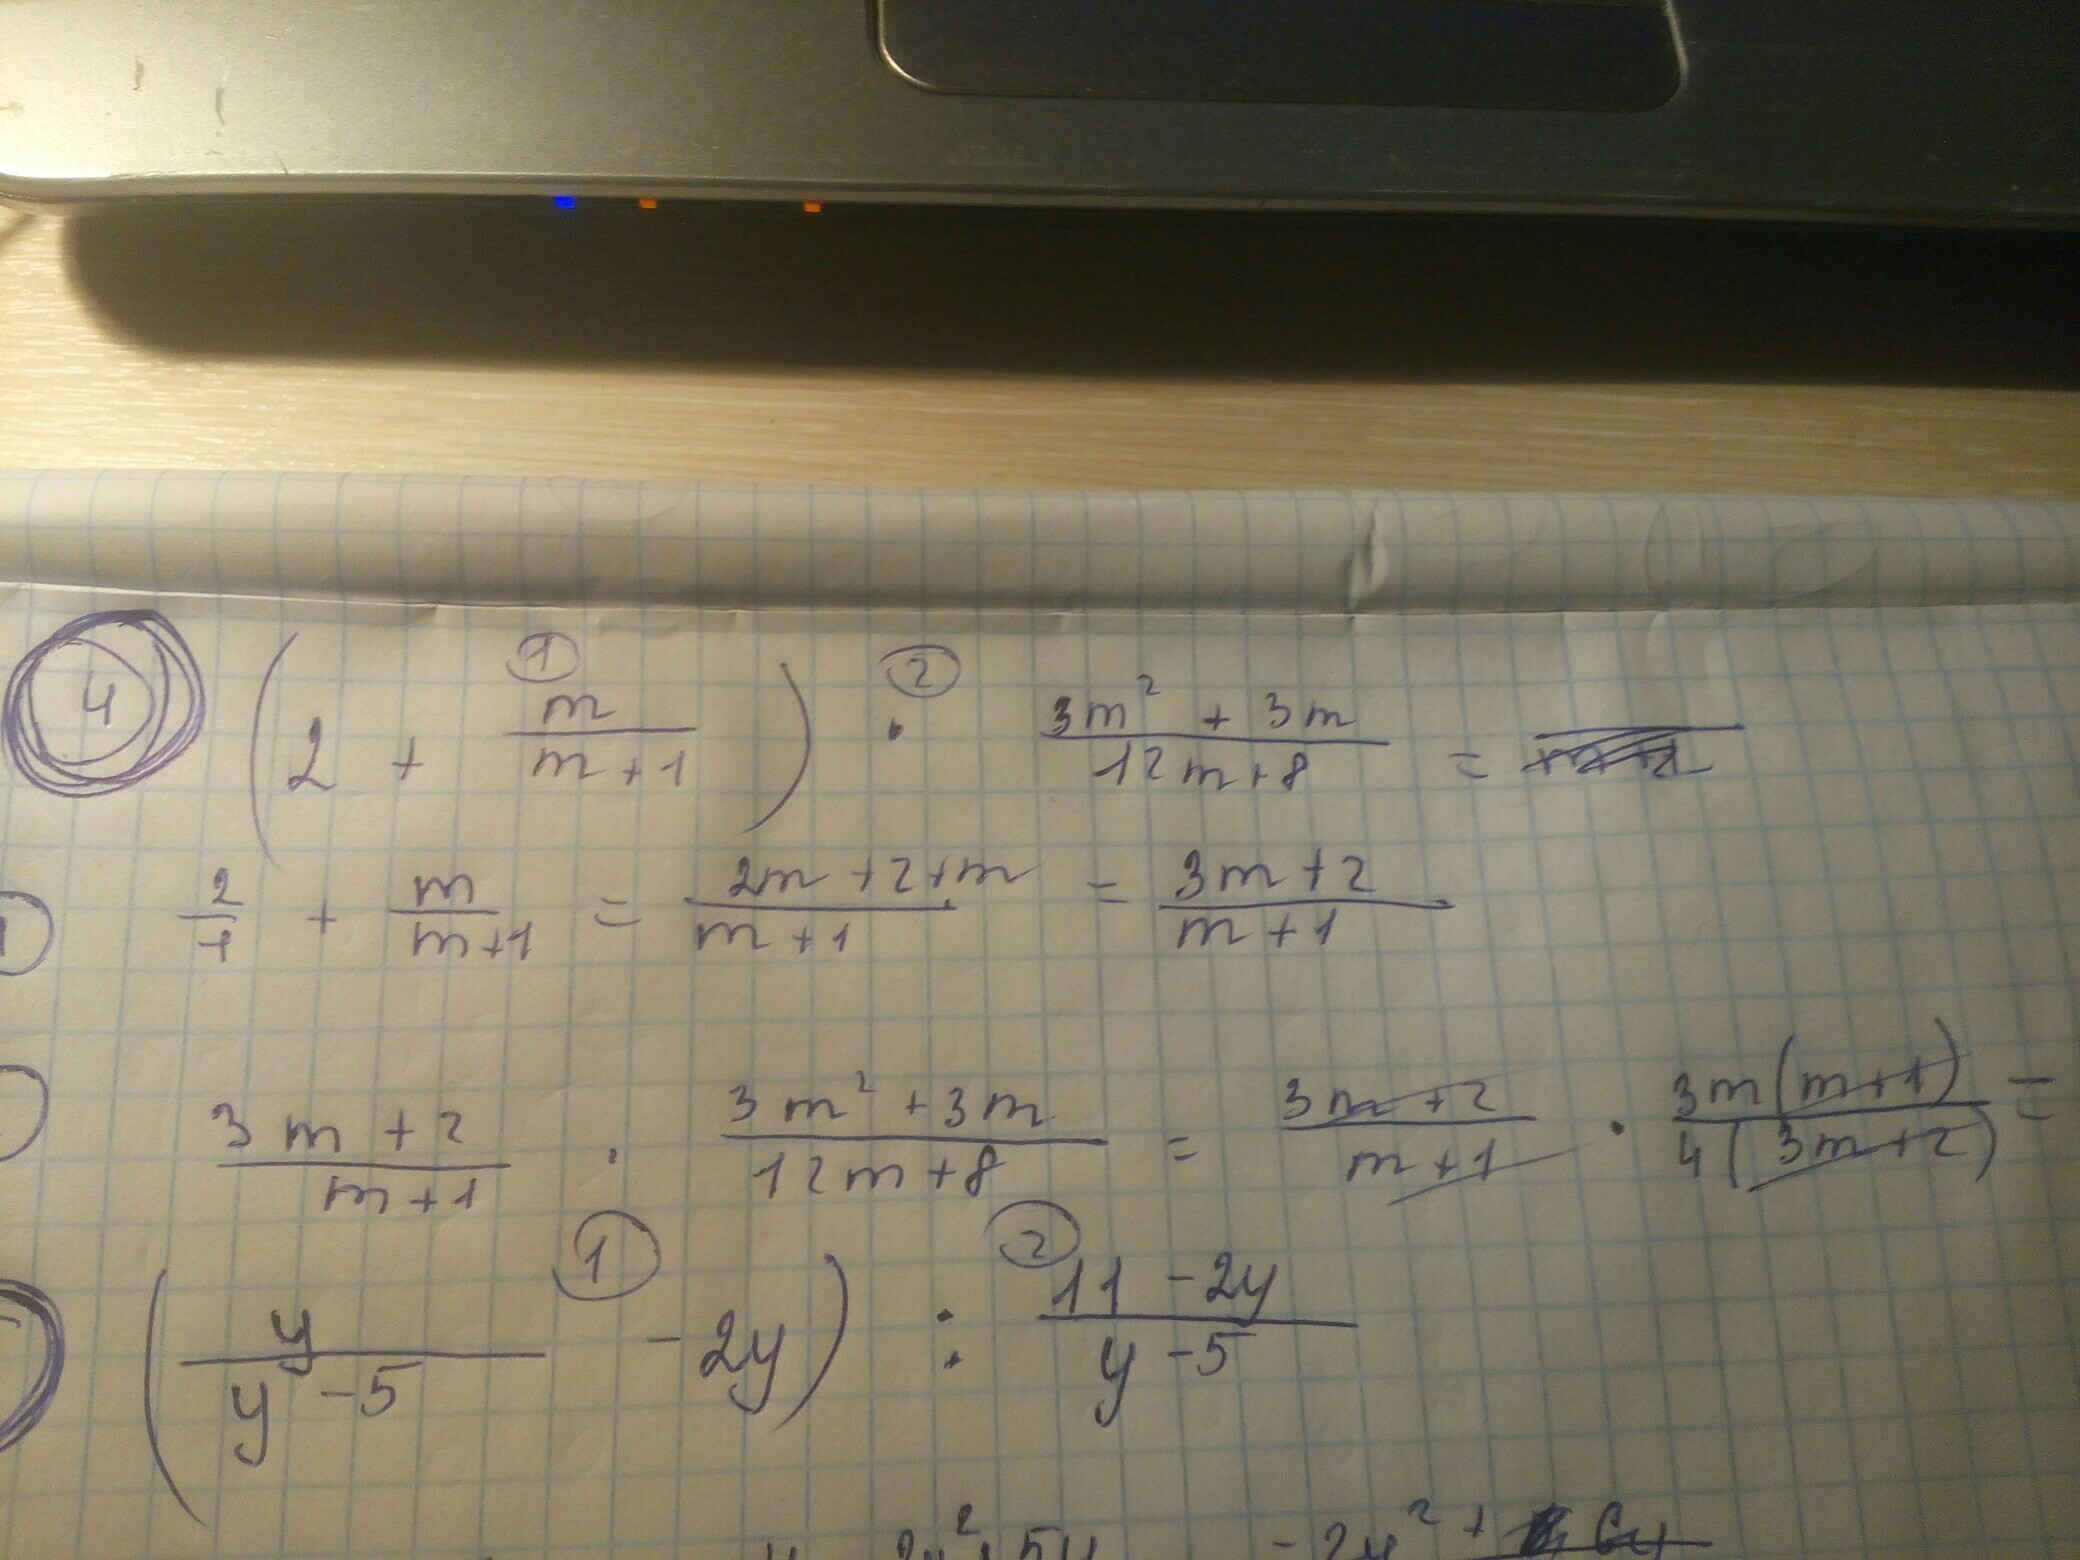 4 ( 2 + m/(m+1) ) ① · ② (3m² + 3m)/(12m+8) =
① 2/1 + m/(m+1) = (2m+2+m)/(m+1) = (3m+2)/(m+1)
(3m+2)/(m+1) · (3m²+3m)/(12m+8) = (3m+2)/(m+1) · 3m(m+1)/4(3m+2) =
( y/(y-5) ① - 2y ) : ② (11-2y)/(y-5)